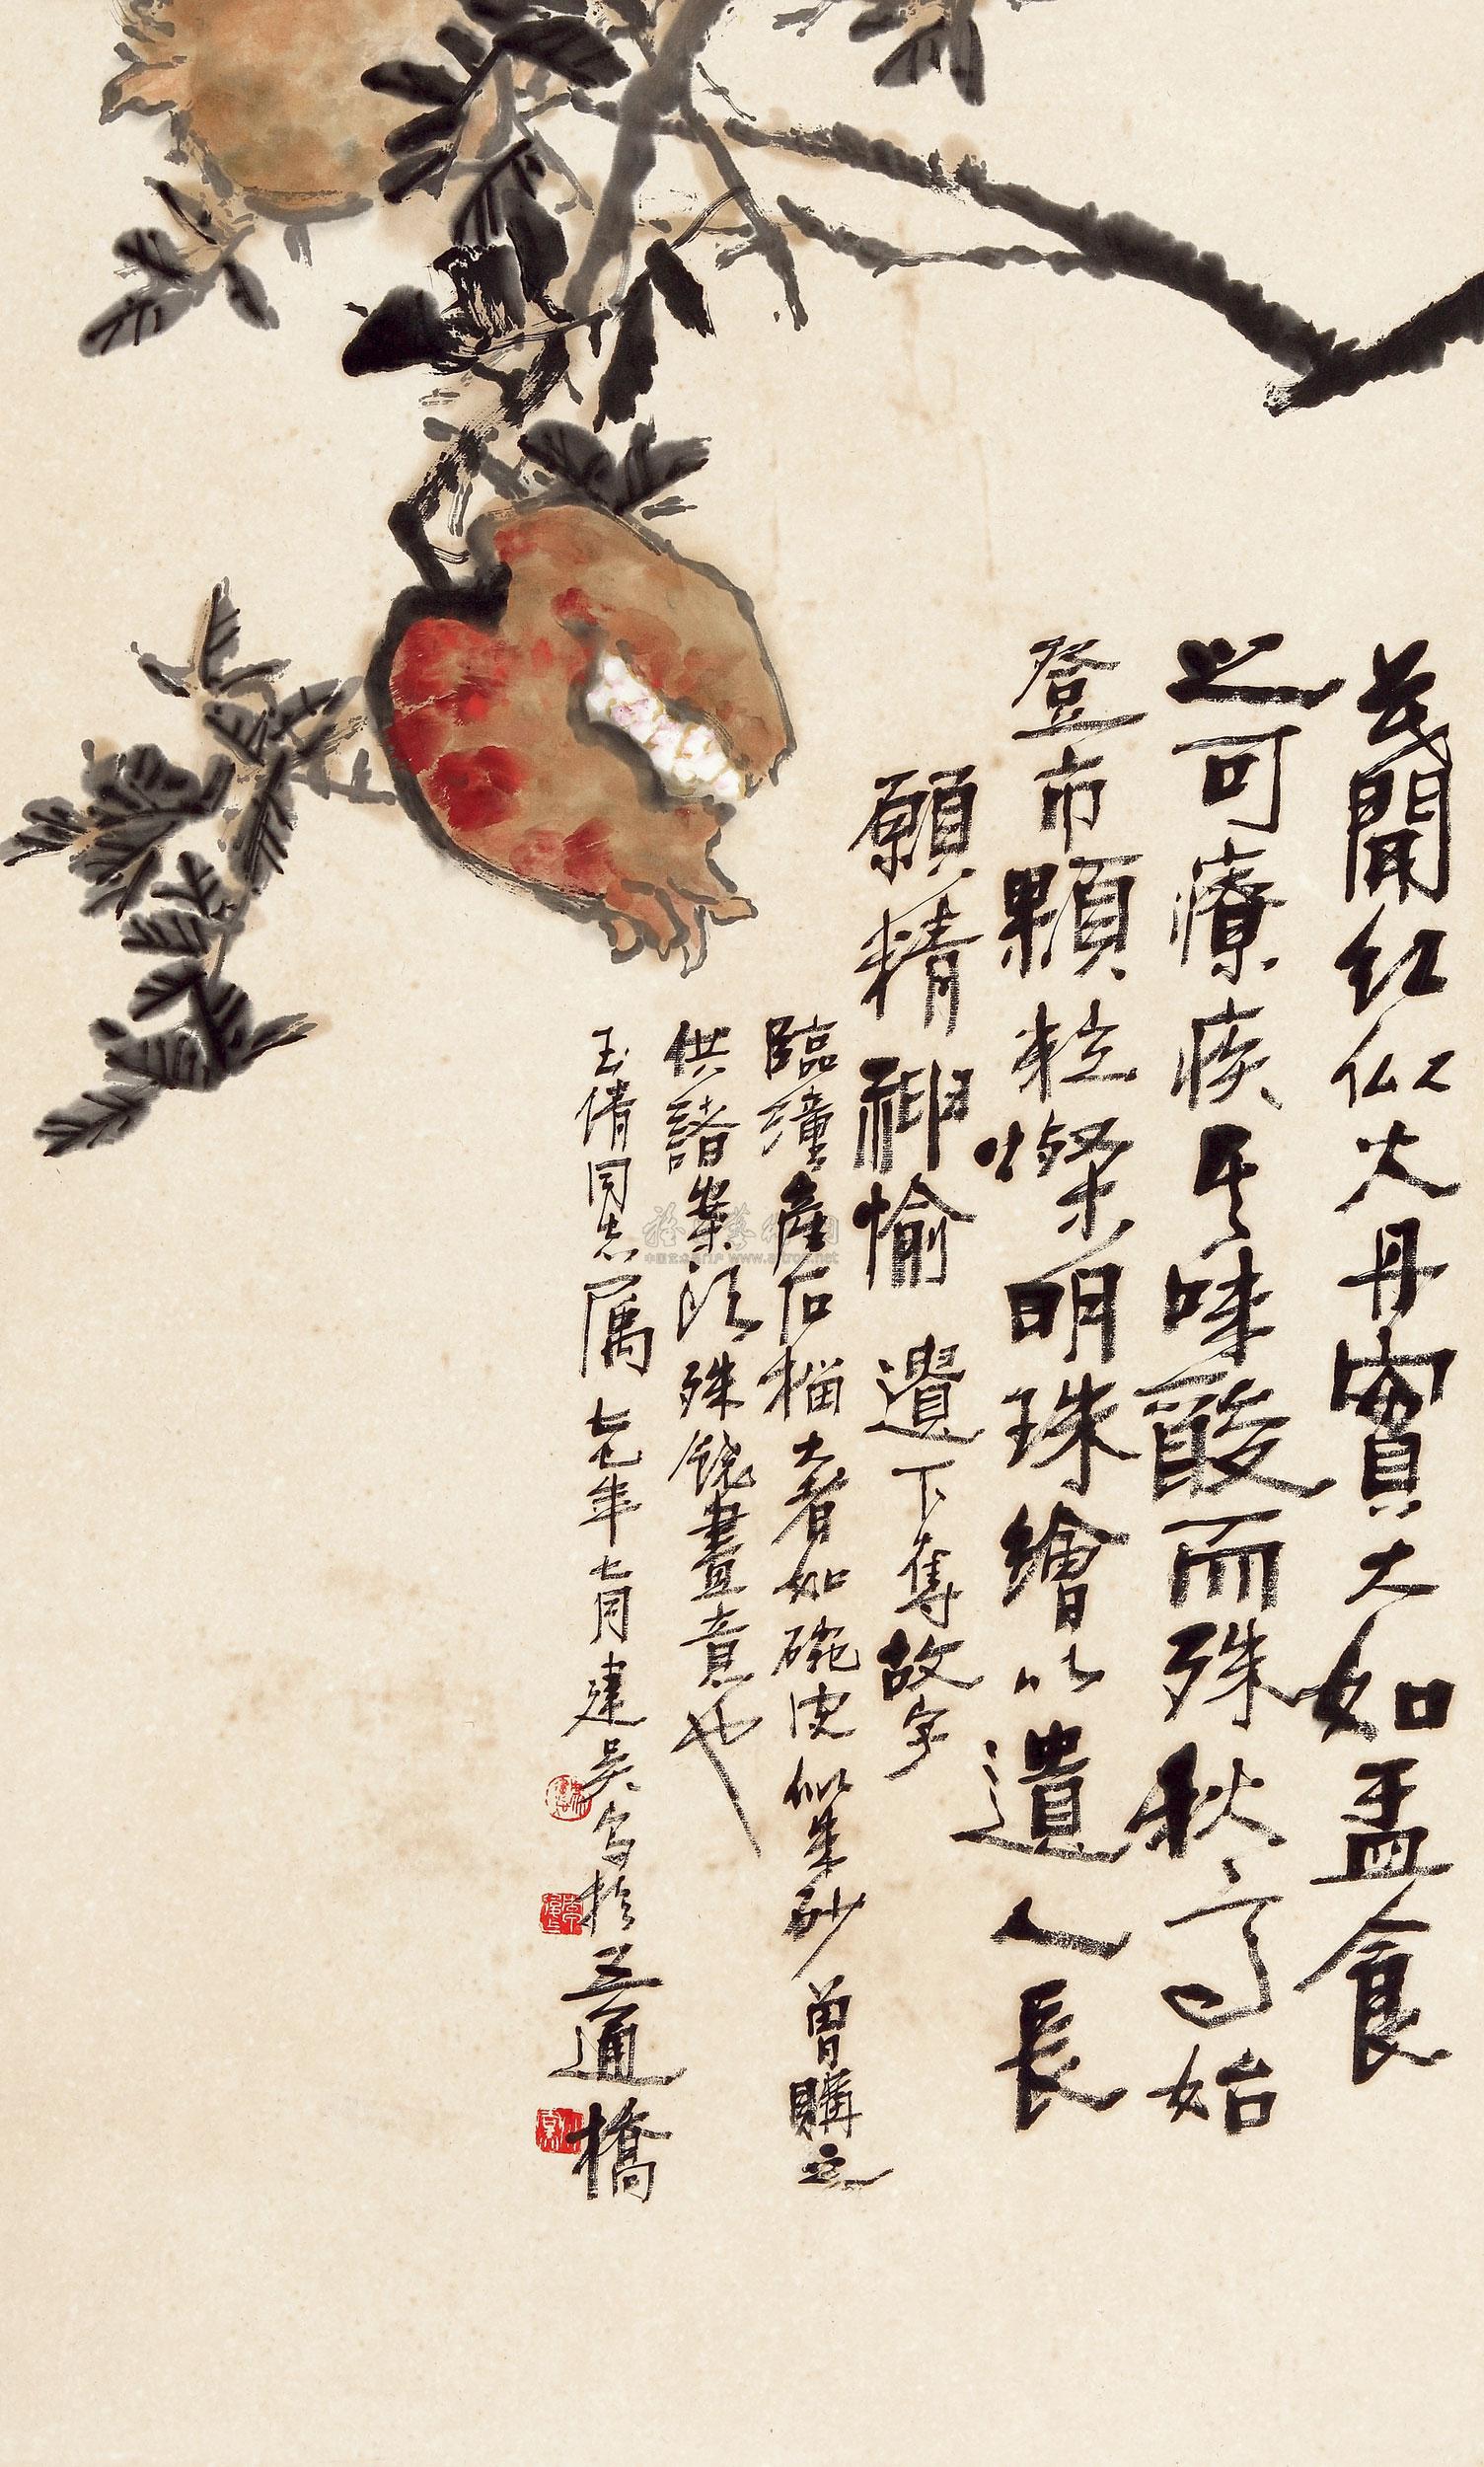 花開紅似火丹實大如盂食
之可療疾其味酸而殊秋高始
登市顆粒燦明珠繪以遺人長
願精神愉 遺下奪故字
臨潼產石榴大者如碗皮似朱砂曾購之
供諸案頭殊饒畫意也
玉倩同志属 七七年七月建吴写於五通橋